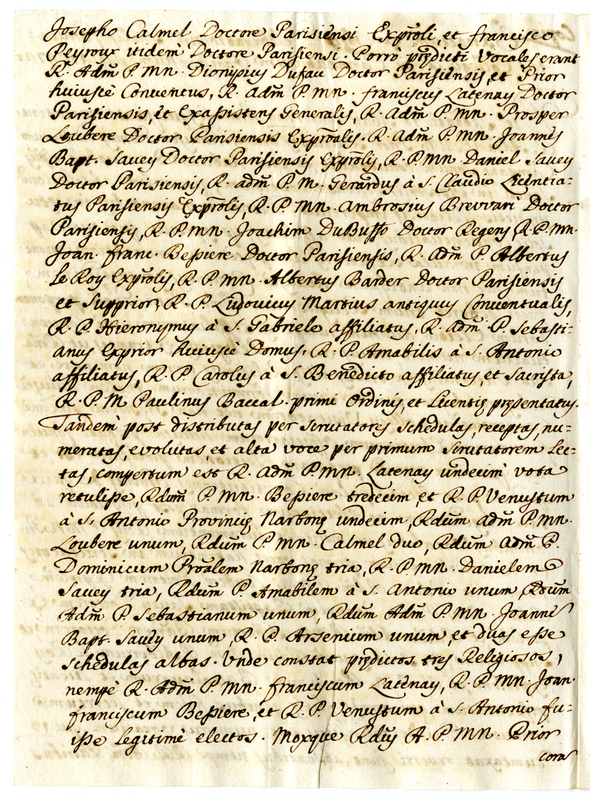 Josepho Calmel Doctore Parisiensi Exp̃roli, et francisco
Peyroux itidem Doctore Parisiensi. Porro prędicti Vocales erant
R. Adm̃ P. Mñ. Dionysius Dufau Doctor Parisiensis, et Prior
huiusce Conventus, R. adm̃ P. Mñ. franciscus Latenay Doctor
Parisiensis, et Exassistens Generalis, R. Adm̃ P. Mñ. Prosper
Loubere Doctor Parisiensis Exp̃rolis. R. Adm̃ P. Mñ. Joannes
Bapt. Savey Doctor Parisiensis Exp̃rolis, R. P. Mñ. Daniel Savey
Doctor Parisiensis, R. adm̃ P. M. Gerardus à S. Claudio Licentia=
tus Parisiensis Exp̃rolis, R. P. Mñ. Ambrosius Brevvari Doctor
Parisiensis, R. P. Mñ. Joachim DuBusso Doctor Regens, R. P. Mñ.
Joan. franc. Bessiere Doctor Parisiensis, R. adm̃ P. Albertus
le Roy Exp̃rolis, R. P. Mñ. Albertus Barder Doctor Parisiensis
et Supprior, R. P. Ludovicus Martius antiquus Conventualis,
R. P. Hieronymus à S. Gabriele affiliatus, R. adm̃ P. Sebasti=
anus Exprior huiusce Domus. R. P. Amabilis à S. Antonio
affiliatus, R. P. Carolus à S. Benedicto affiliatus, et Sacrista,
R. P. M. Paulinus Baccal. primi Ordinis, et Licentię pręsentatus.
Tandem post distributas per Scrutatores Schedulas, receptas, nu=
meratas, evolutas, et alta voce per primum Scrutatorem Lec=
tas, compertum est R. adm̃ P. Mñ. Latenay undecim vota
retulisse, Rdom̃ P. Mñ. Bessiere tredecim, et R. P. Venustum
à S. Antonio Provincię Narbonę undecim, Rdum̃ adm̃ P. Mñ.
Loubere unum, Rdum̃ P. Mñ. Calmel duo, Rdum̃ adm̃ P.
Dominicum Proãlem Narbonę tria, R. P. Mñ. Danielem
Savey tria, Rdum̃ P. Amabilem à S. Antonio unum, Rdum̃
Adm̃ P. Sebastianum unum, Rdum̃ Adm̃ P. Mñ. Joannẽ
Bapt. Savey unum, R. P. Arsenium unum et duas esse
schedulas albas. Unde constat prędictos tres Religiosos,
nempè R. Adm̃ P. Mñ. franciscum Latenay, R. P. Mñ. Joan.
franciscum Bessiere, et R. P. Venustum à S. Antonio fu=
isse legitimè electos. Moxque Rdus A. P. Mñ. Prior
cora